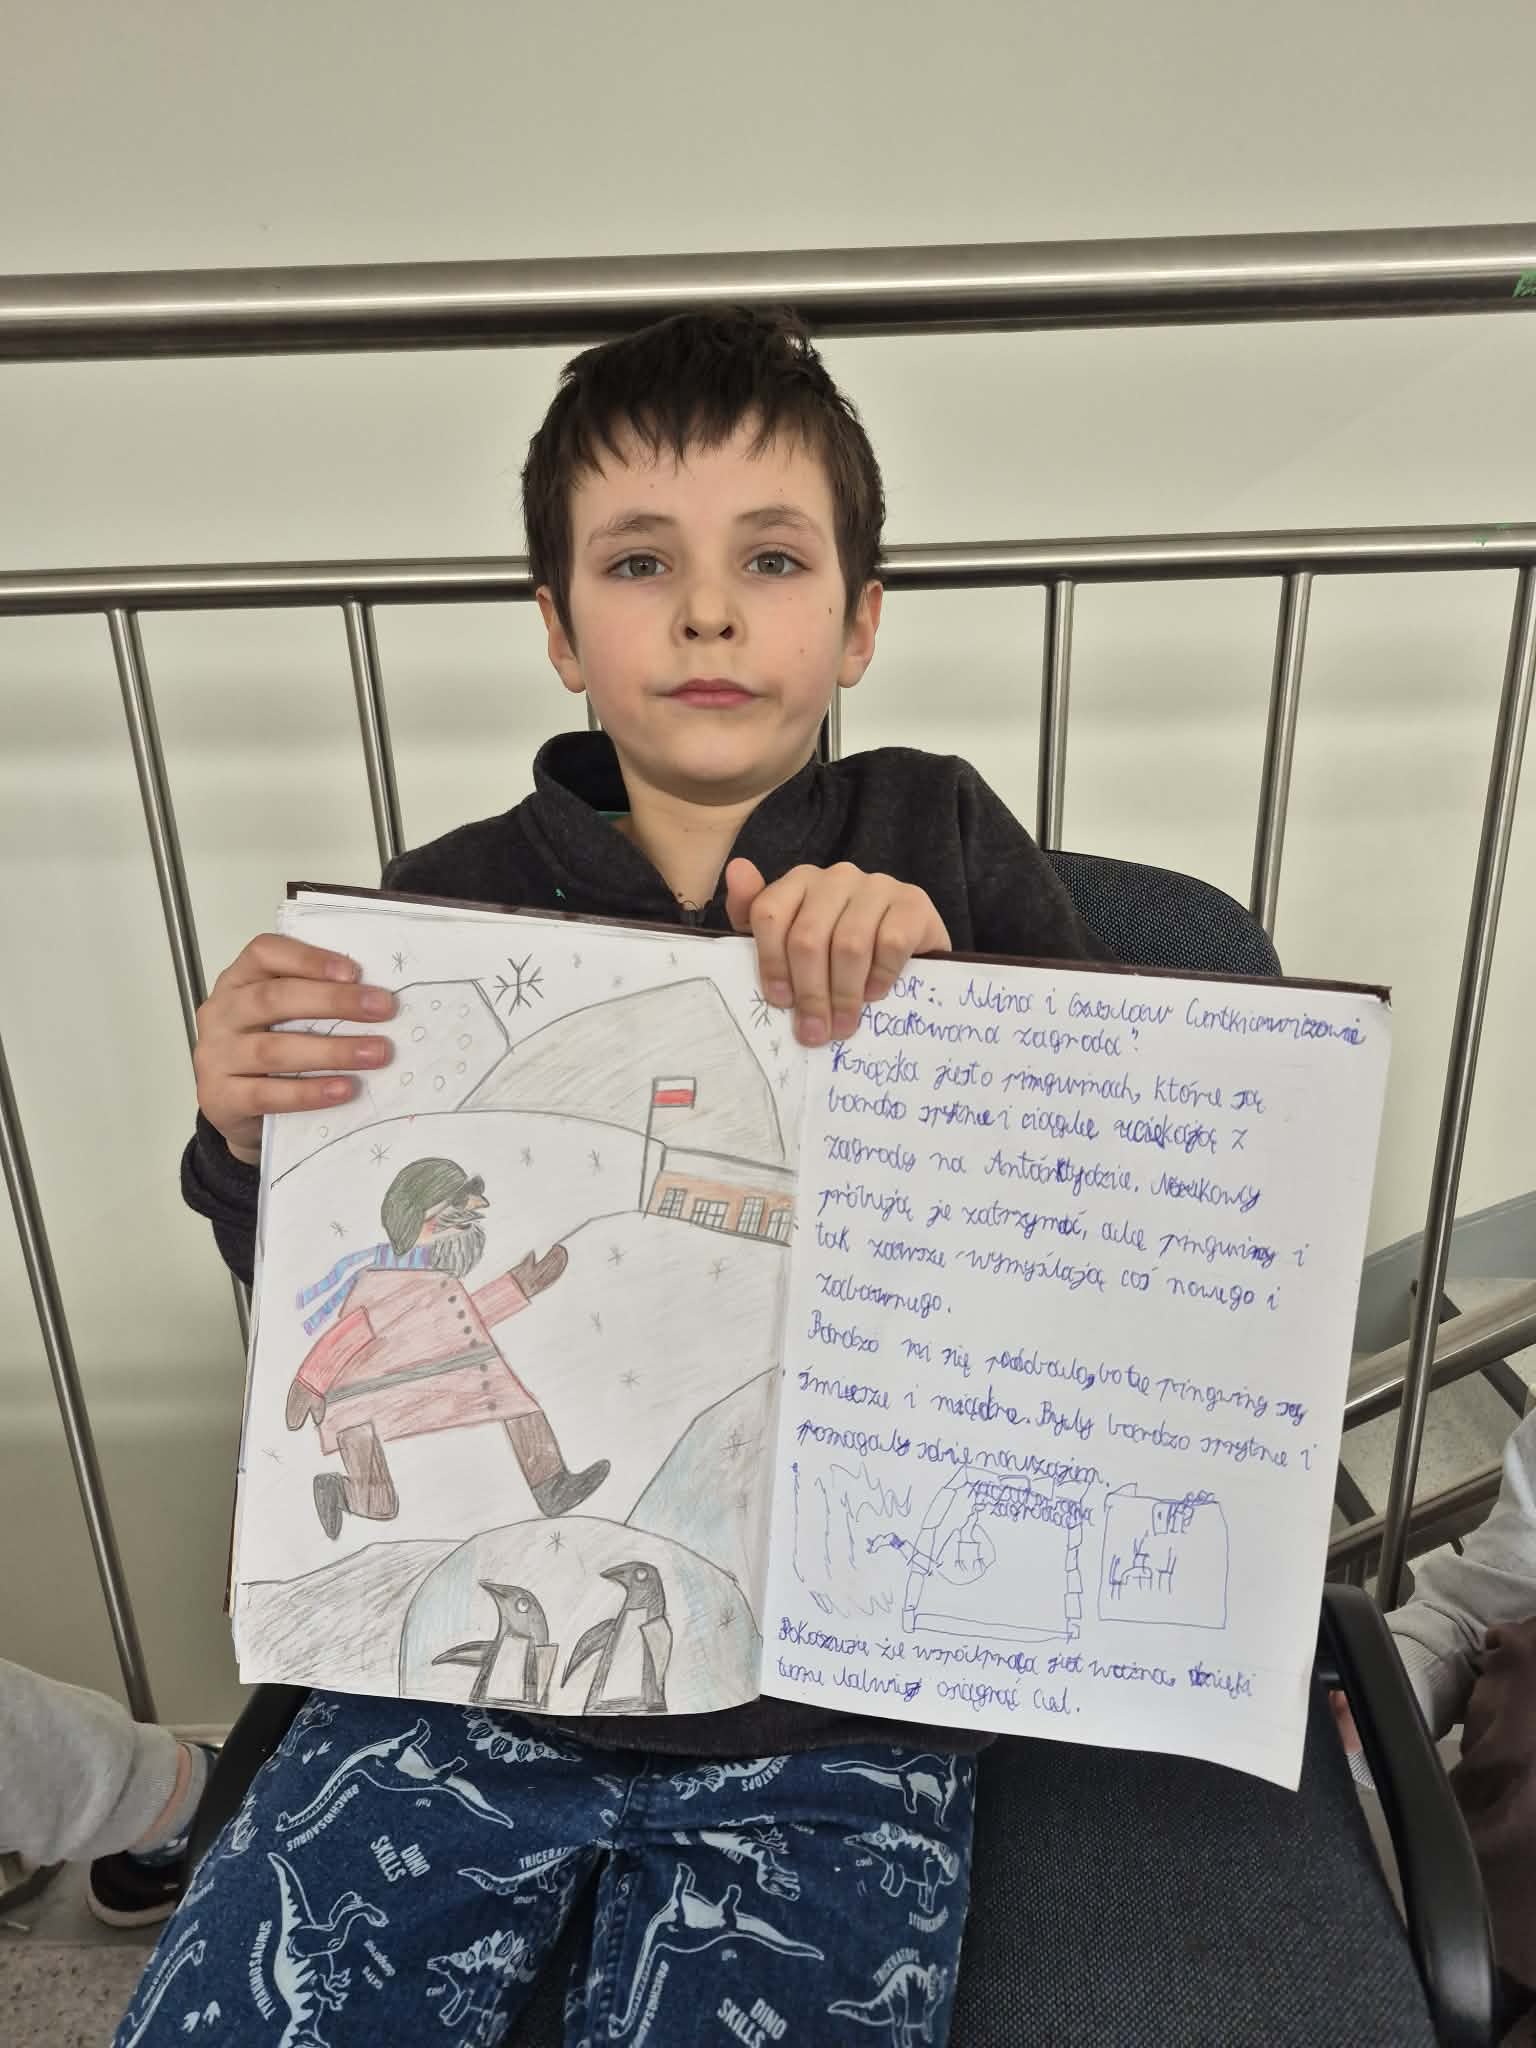 Alina i Czesław Centkiewiczowie
Aczakowana zagroda"
Książka jest o pingwinach, które są
bardzo sprytne i ciągle uciekają z
zagrody na Antarktydzie. Naukowcy
próbują je zatrzymać, ale pingwiny i
tak zawsze wymyślają coś nowego i
zabawnego.
Bardzo mi się podobało, bo te pingwiny są
śmieszne i mądre. Były bardzo sprytne i
pomagały sobie nawzajem.
zagroda
Pokazuje że współpraca jest ważna, dzięki
osiągnąć cel.
BRACHIOSAURUS
DINO
SKILLS
TRICERAT
smart
TYRANNOSAURUS
extra
dangerous
cool
ERATOPS
cool
STEGOSAURUS
TRICERATOPS
DINO
SKILLS